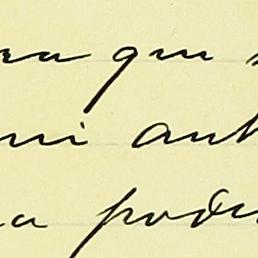 ra que
mi ant
a pode